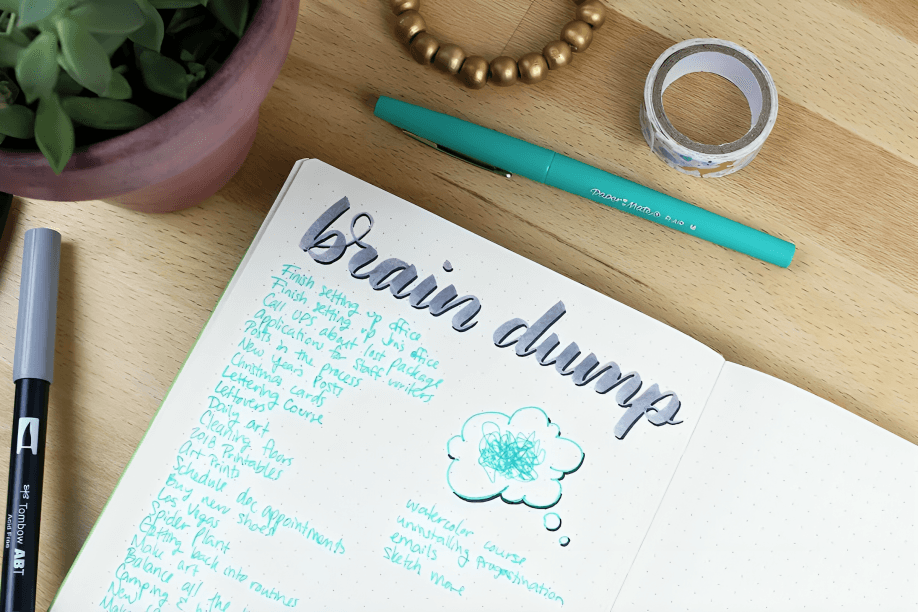 brain dump
Finish setting up office
Finish setting up Jon's office
Call UPS about lost package
application to staff writers
Posts in the process
New Year's Posts
Christmas cards
Lettering Course
Leftovers
Daily art
Cleaning floors
2018 Printables
Art Prints
Schedule doc appointments
Buy new shoes
Las Vegas
Spider Plant
Getting back into routines
Make art
Balance all the
Camping &
New
Make
watercolor course
uninstalling Progastination
emails
sketch more
Paper:Mate FLAIR M
Tombow ABT
Acid Free